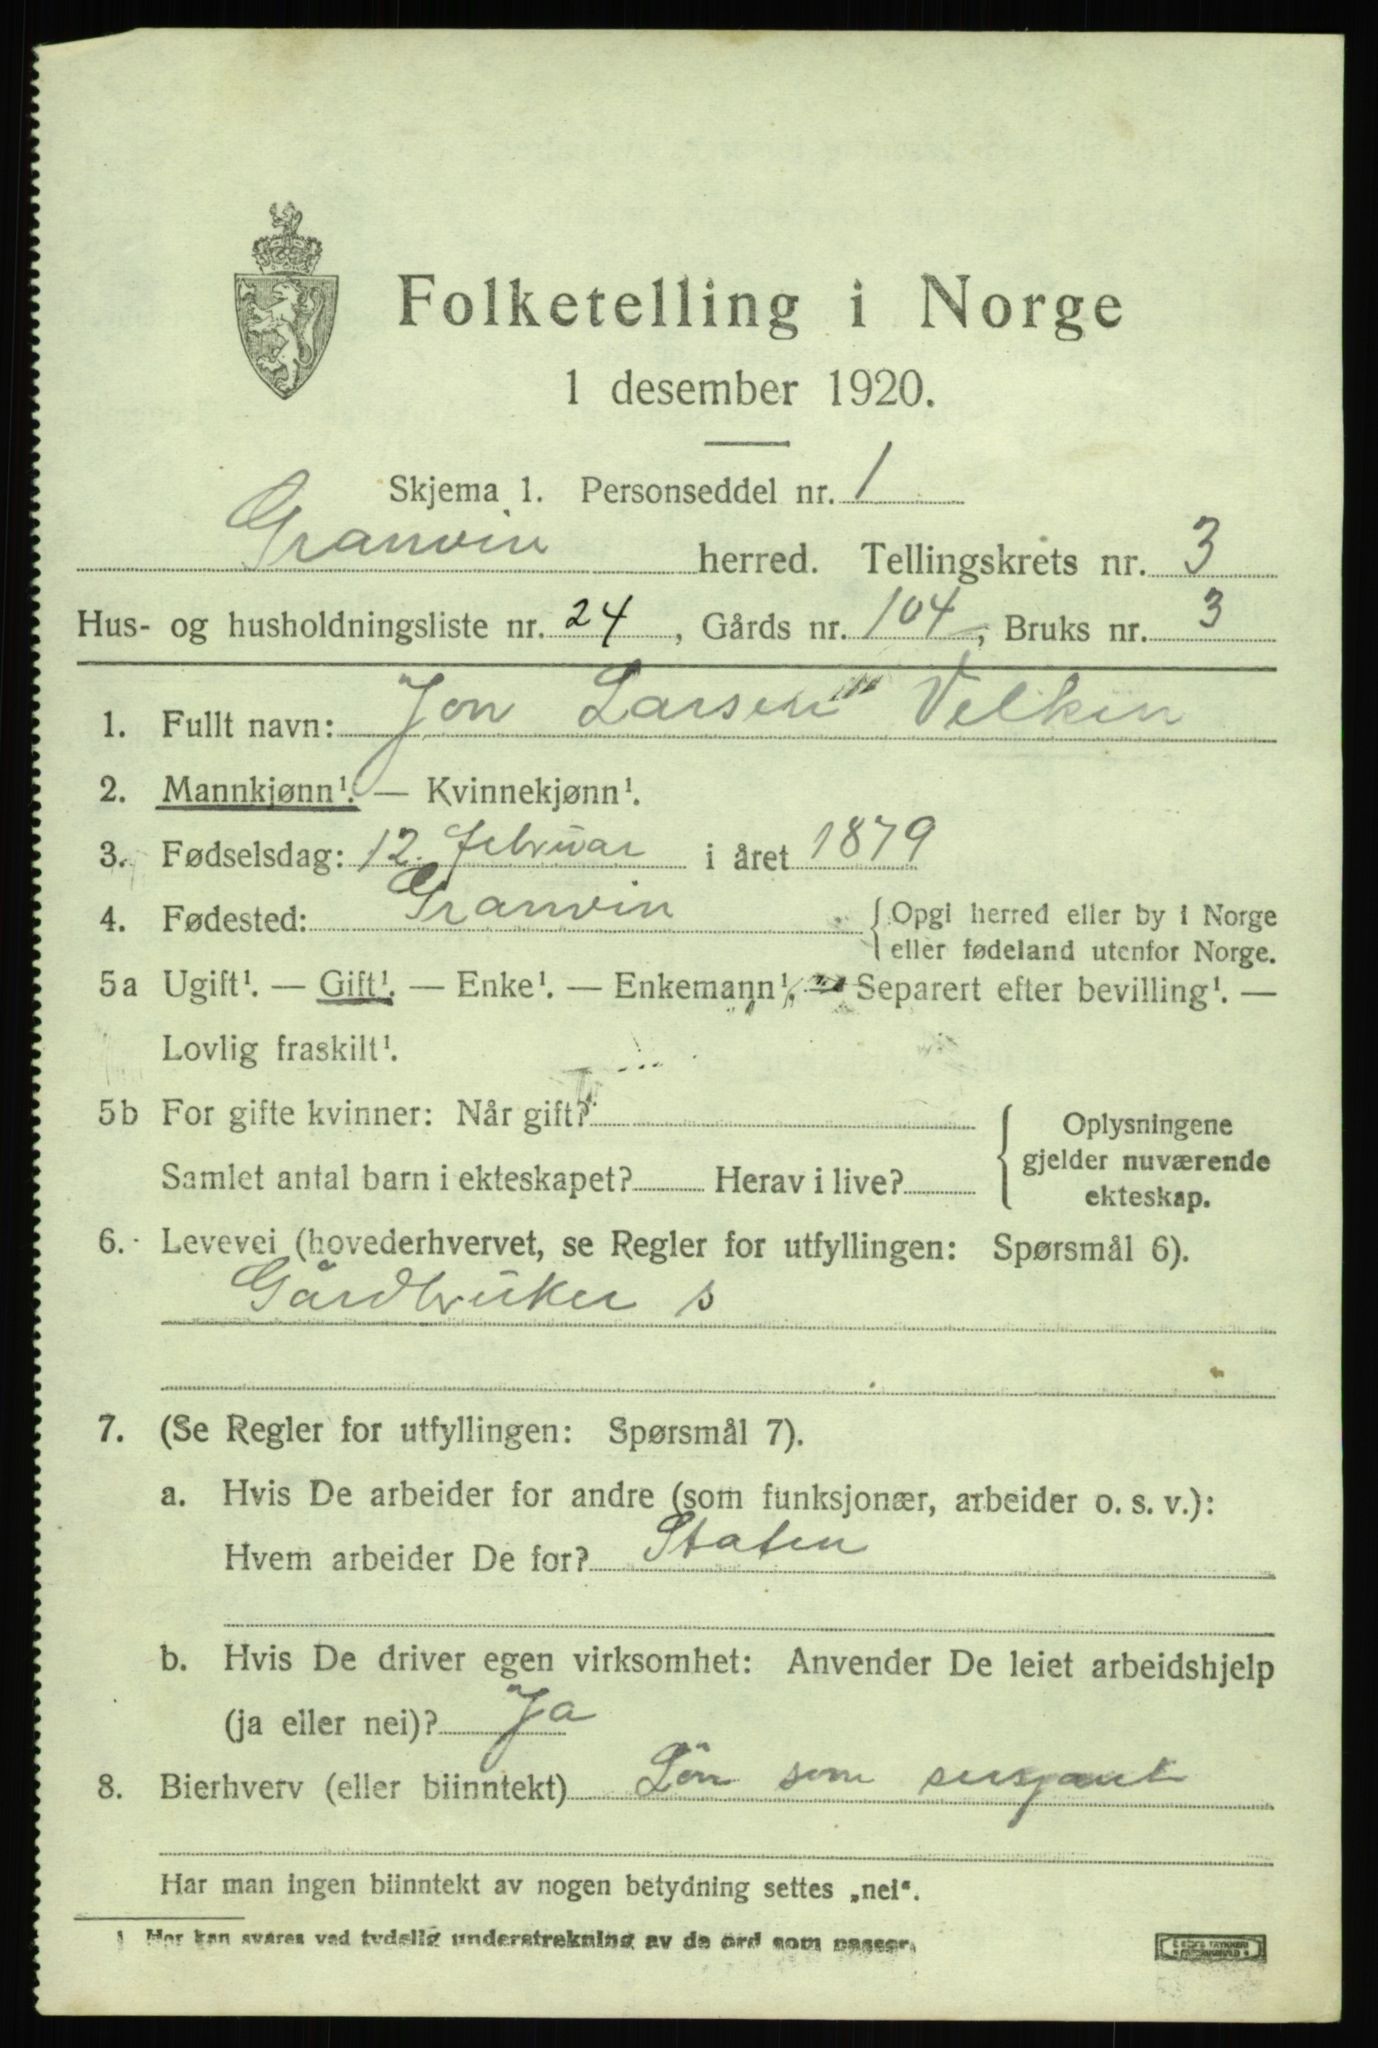 Folketelling i Norge
1 desember 1920.
Skjema 1. Personseddel nr. 1
Granvin herred. Tellingskrets nr. 3
Hus- og husholdningsliste nr. 24, Gårds nr. 104, Bruks nr. 3
1. Fullt navn: Jon Larsen Velken
2. Mannkjønn¹. — Kvinnekjønn¹.
3. Fødselsdag: 12. februar i året 1879
4. Fødested: Granvin {Opgi herred eller by i Norge
eller fødeland utenfor Norge.
5a Ugift¹. — Gift¹. — Enke¹. — Enkemann¹. — Separert efter bevilling¹. —
Lovlig fraskilt¹.
5b For gifte kvinner: Når gift? { Oplysningene
gjelder nuværende
Samlet antal barn i ekteskapet? Herav i live? ekteskap.
6. Levevei (hovederhvervet, se Regler for utfyllingen: Spørsmål 6).
Gårdbruker s
7. (Se Regler for utfyllingen: Spørsmål 7).
a. Hvis De arbeider for andre (som funksjonær, arbeider o. s. v.):
Hvem arbeider De for? Staten
b. Hvis De driver egen virksomhet: Anvender De leiet arbeidshjelp
(ja eller nei)? Ja
8. Bierhverv (eller biinntekt) Lön som sersjant
Har man ingen biinntekt av nogen betydning settes „nei“.
1 Her kan svares ved tydelig understrekning av de ord som passer.